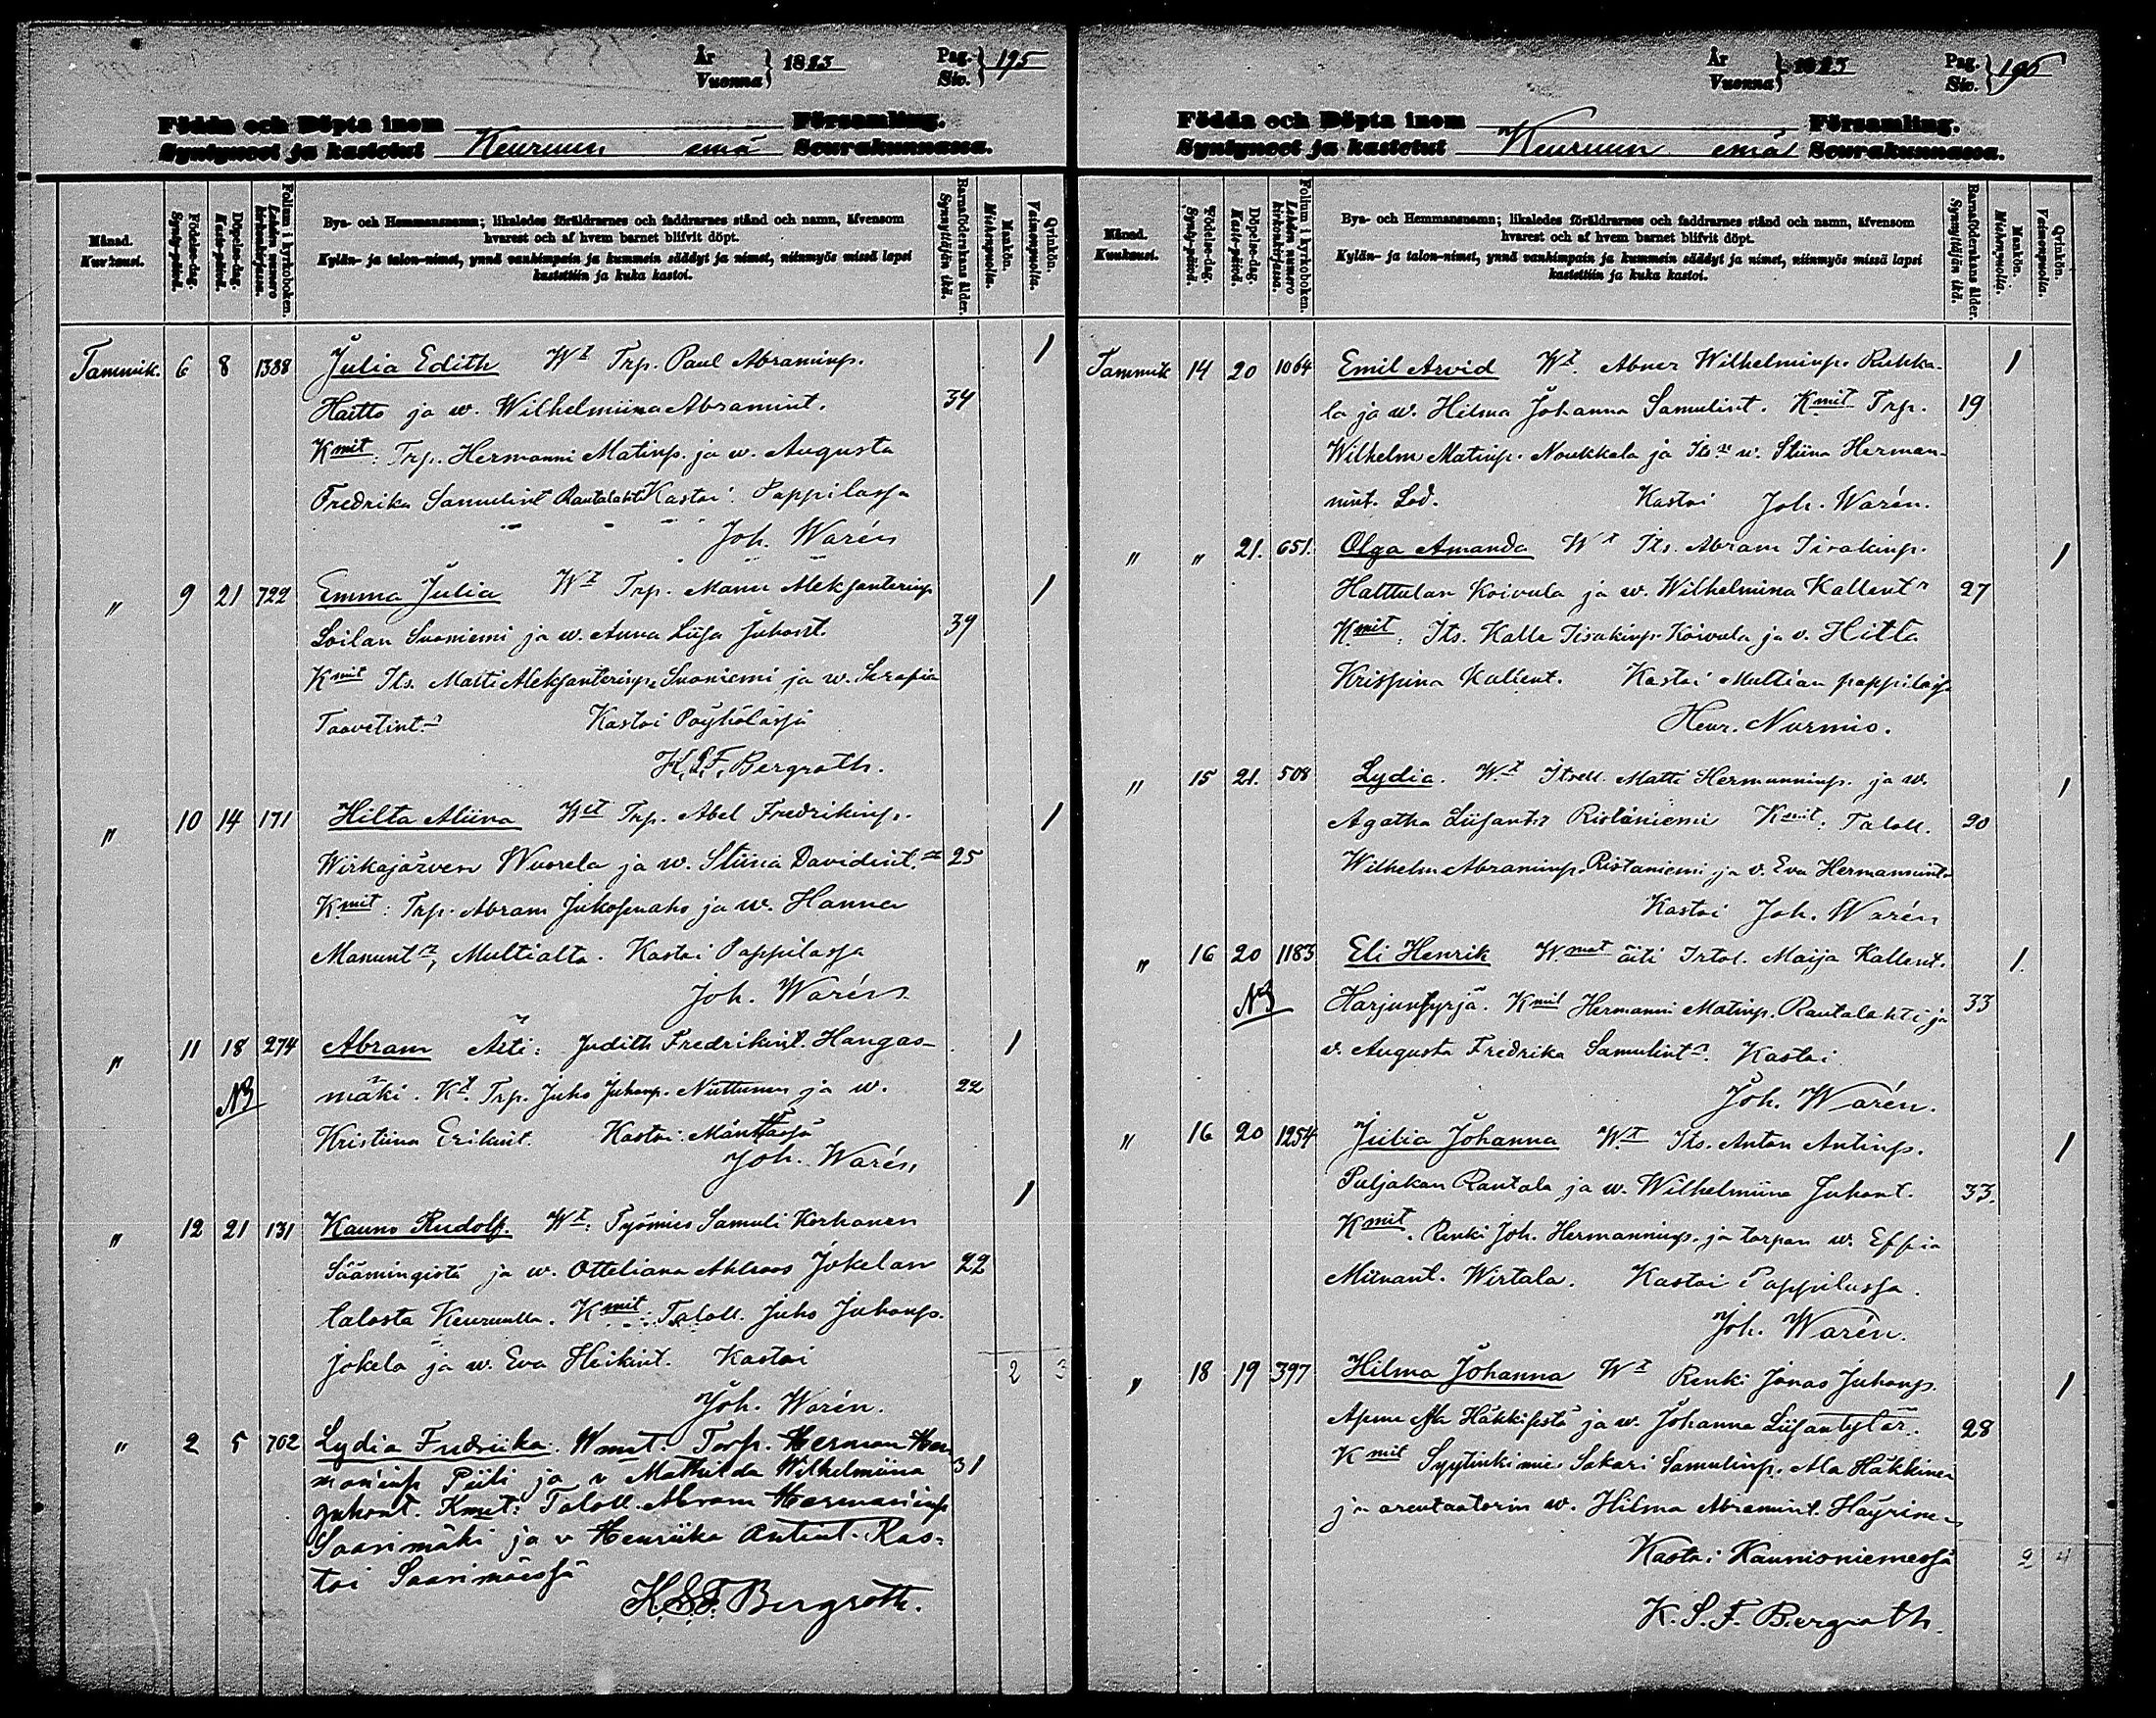 År
Vuonna } 1893
Pag.
Siv. } 195
Födda och Döpta inom Församling.
Syntyneet ja kastetut Keuruun emä Seurakunnassa.
Månad.
Kuukausi.
Födelse-dag.
Synty-päivä.
Döpelse-dag.
Kaste-päivä.
Folium i kyrkoboken.
Lehden numero kirkonkirjassa.
Bya- och Hemmansnamn; likaledes föräldrarnes och faddrarnes stånd och namn, äfvensom
hvarest och af hvem barnet blifvit döpt.
Kylän- ja talon-nimet, ynnä vanhimpain ja kummein säädyt ja nimet, niinmyös missä lapsi
kastettiin ja kuka kastoi.
Barnaföderskans ålder.
Synnyttäjän ikä.
Mankön.
Miehenpuolia.
Qvinkön.
Vaimonpuolia.
Tammik. 6 8 1388 Julia Edith Wt Trp. Paul Abraminp. 1
Haitto ja w. Wilhelmiina Abramint. 34
Kmit: Trp. Hermanni Matinp. ja w. Augusta
Fredrika Samulint Rautalahti Kastoi Pappilassa
Joh. Warén
" 9 21 722 Emma Julia Wt Trp. Manu Aleksanterinp 1
Loilan Suoniemi ja w. Anna Liisa Juhont. 39
Kmit Its. Matti Aleksanterinp. Suoniemi ja w. Serafia
Taavetint. Kastoi Pöyhölässä
K.S.F. Bergroth.
" 10 14 171 Hilta Aliina Wt Trp. Abel Fredrikinp. 1
Wirkajärven Wuorela ja w. Stiina Davidint. 25
Kmit: Trp. Abram Jukosenaho ja w. Hanna
Manunt, Multialta. Kastoi Pappilassa
Joh. Warén
" 11 18 274 Abram Äiti: Judith Fredrikint. Hangas- 1
NB mäki. Kt. Trp. Juho Juhonp. Niittunen ja w. 22
Kristiina Erikint. Kastoi Mänttässä
Joh. Warén
" 12 21 131 Kauno Rudolf. Wt: Työmies Samuli Korhonen 1
Säämingistä ja w. Otteliana Ahlroos Jokelan 22
talosta Keuruulla. Kmit: Taloll. Juho Juhonp.
Jokela ja w. Eva Heikint. Kastoi 2 3
Joh. Warén.
" 2 5 702 Lydia Fredriika. Wmat. Torp. Herman Her
maninp Piili ja v Mathilda Wilhelmiina 31
Juhont. Kmit: Taloll. Abram Hermaninp
Saarimäki ja v Henriika Antint. Kas-
toi Saarimäessä
K.S.F. Bergroth.
År
Vuonna } 1893
Pag.
Siv. } 195
Födda och Döpta inom Församling.
Syntyneet ja kastetut Keuruun emä Seurakunnassa.
Månad.
Kuukausi.
Födelse-dag.
Synty-päivä.
Döpelse-dag.
Kaste-päivä.
Folium i kyrkoboken.
Lehden numero kirkonkirjassa.
Bya- och Hemmansnamn; likaledes föräldrarnes och faddrarnes stånd och namn, äfvensom
hvarest och af hvem barnet blifvit döpt.
Kylän- ja talon-nimet, ynnä vanhimpain ja kummein säädyt ja nimet, niinmyös missä lapsi
kastettiin ja kuka kastoi.
Barnaföderskans ålder.
Synnyttäjän ikä.
Mankön.
Miehenpuolia.
Qvinkön.
Vaimonpuolia.
Tammik 14 20 1064 Emil Arvid Wt. Abner Wilhelminp. Ruhka- 1
la ja w. Hilma Johanna Samulint. Kmit Trp. 19
Wilhelm Matinp. Noukkala ja Its. w. Stiina Herman-
nint. Lod. Kastoi Joh. Warén.
" " 21. 651. Olga Amanda Wt Its. Abram Iisakinp. 1
Halttulan Koivula ja w. Wilhelmina Kallent 27
Kmit: Its. Kalle Iisakinp. Koivula ja v. Hilta
Krissina Kallent. Kastoi Multian pappilassa
Henr. Nurmio.
" 15 21. 508 Lydia. Wt Itsell. Matti Hermanninp. ja w. 1
Agatha Liisant. Ristaniemi Kmit: Taloll. 20
Wilhelm Abraminp. Ristaniemi ja v. Eva Hermannint.
Kastoi Joh. Warén
" 16 20 1183 Eli Henrik W.mat äiti Irtol. Maija Kallent. 1.
NB Harjunsyrjä. Kmit Hermanni Matinp. Rautalahti ja 33
v. Augusta Fredrika Samulint. Kastoi
Joh. Warén.
" 16 20 1254 Julia Johanna Wt Its. Anton Antinp. 1
Puljakan Rantala ja w. Wilhelmiina Juhont. 33.
Kmit. Renki Joh. Hermanninp. ja torpan w. Effia
Miinant. Wirtala. Kastoi Pappilassa.
Joh. Warén.
" 18 19 397 Hilma Johanna Wt Renki Jonas Juhonp. 1
Ala Häkkisestä ja w. Johanna Liisantytär. 28
Kmit Syytinkimies Sakari Samulinp. Ala Häkkinen
ja arentaatorin w. Hilma Abramint. Häyrinen
Kastoi Kaunisniemessä 2 4
K.S.F. Bergroth.